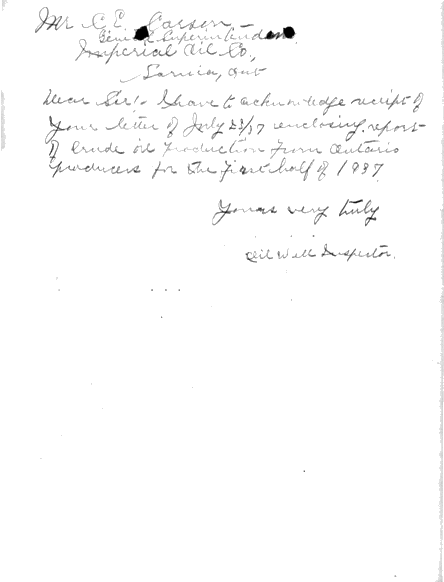 Mr C. E. Carson -
General Superintendent
Imperial Oil Co.,
Sarnia, Ont
Dear Sir:- I have to acknowledge receipt of
your letter of July 23/37 enclosing report
of Crude oil Production From Ontario
producers for the First half of 1937
Yours very truly
Oil Well Inspector.